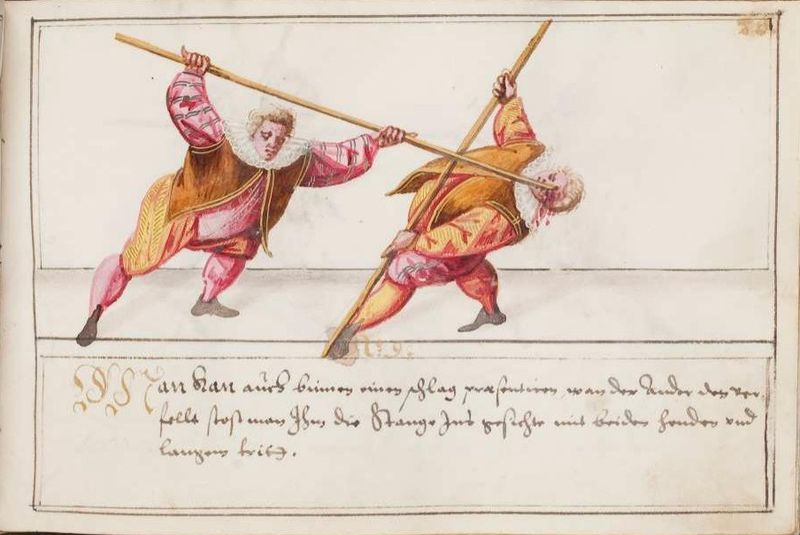 Man kan auch binnen einen schlag præsentiren, wan der Ander den ver,
felt stost man Ihm die Stange Ins gesichte mit beiden henden vnd
langem tritt.